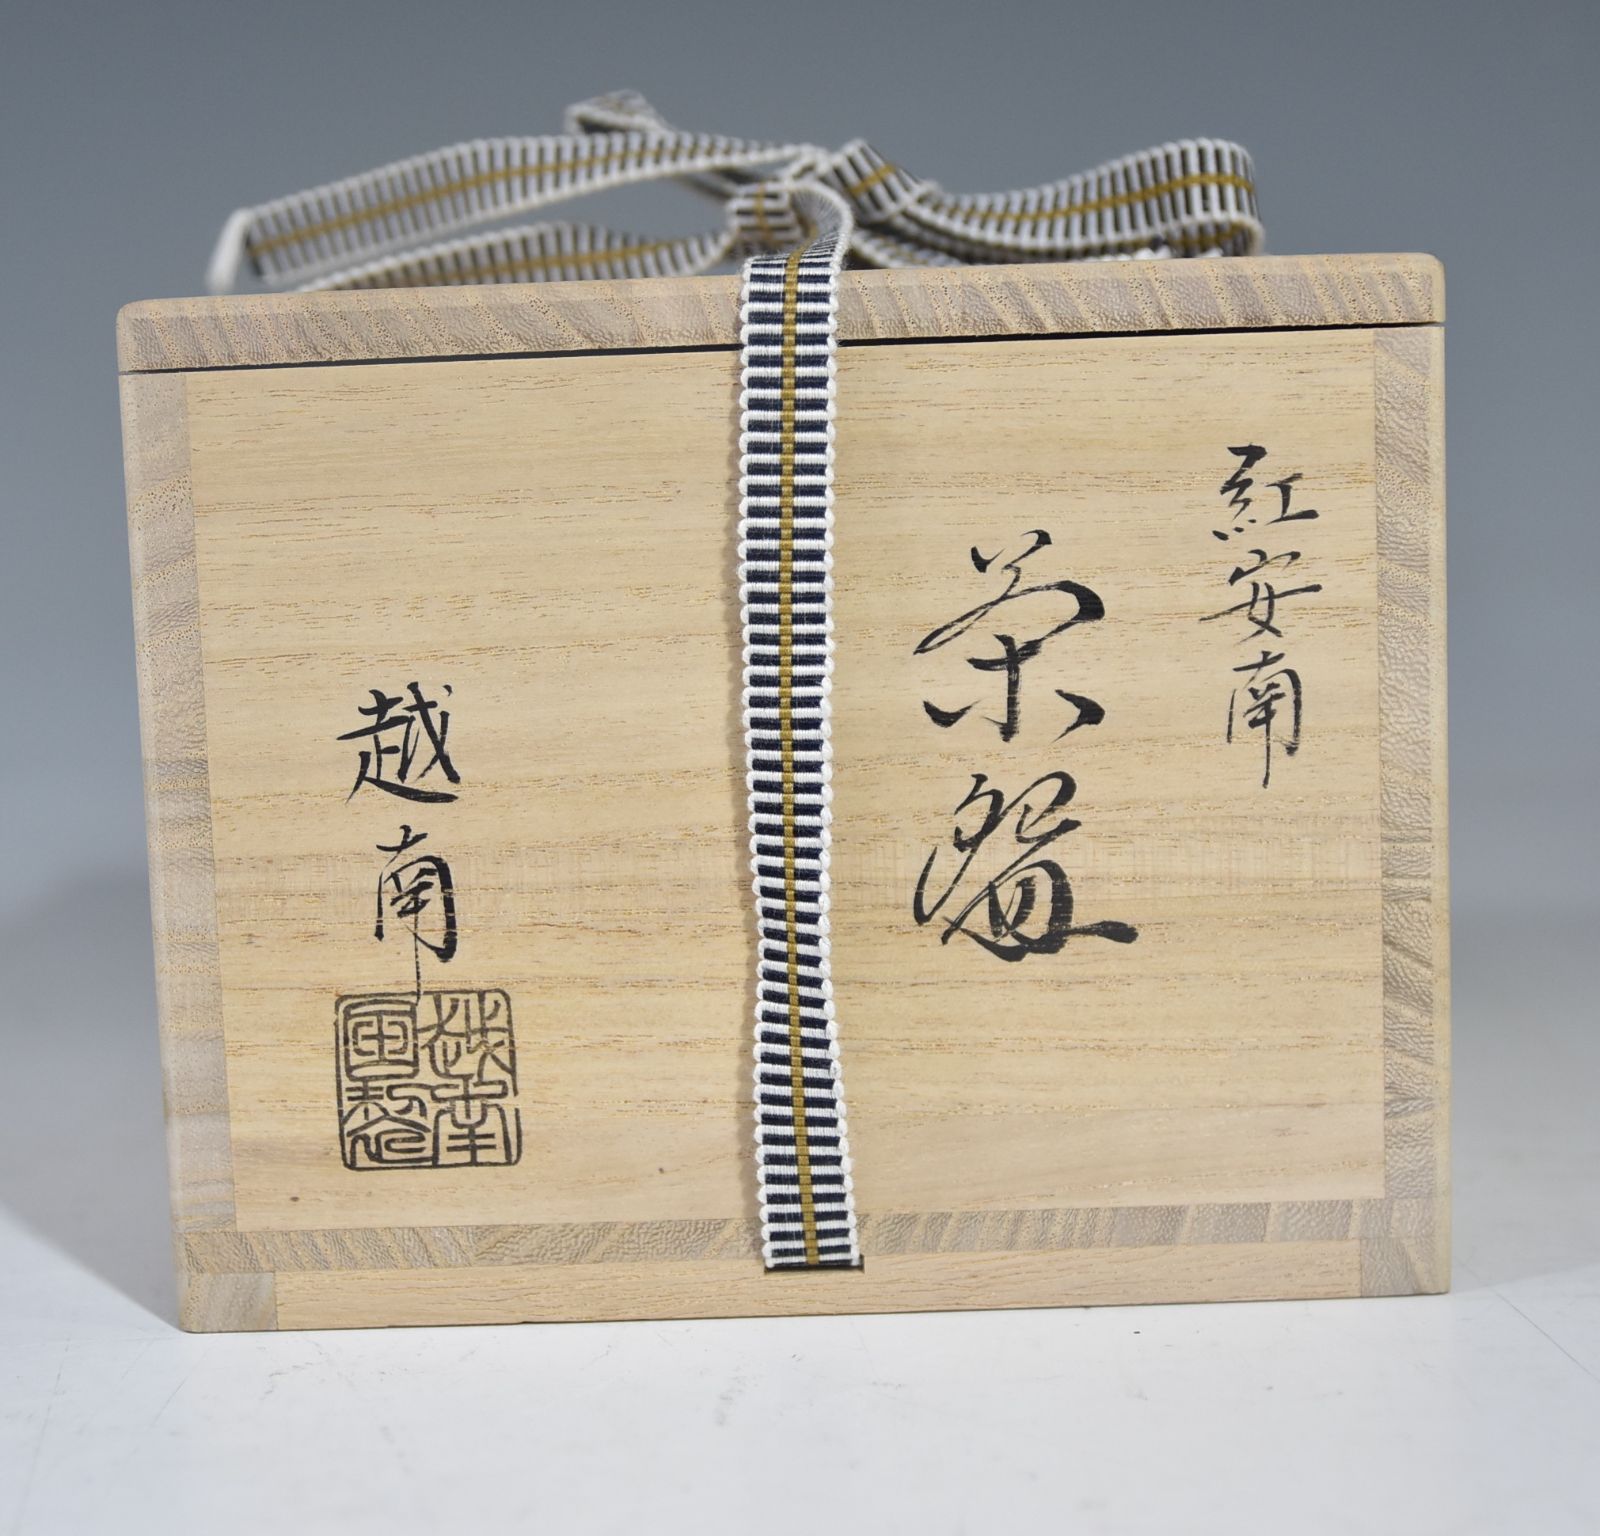 紅安南
茶盌
越南